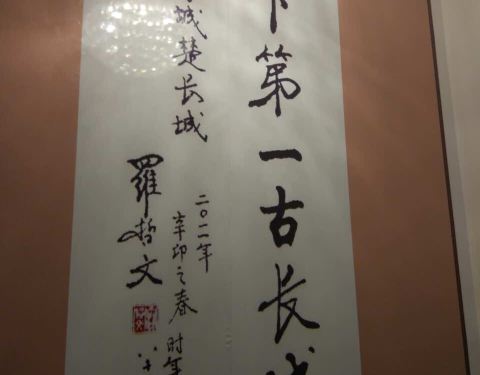 下第一古长城
城楚长城
二〇一一年
辛卯之春 时年八十
羅哲文